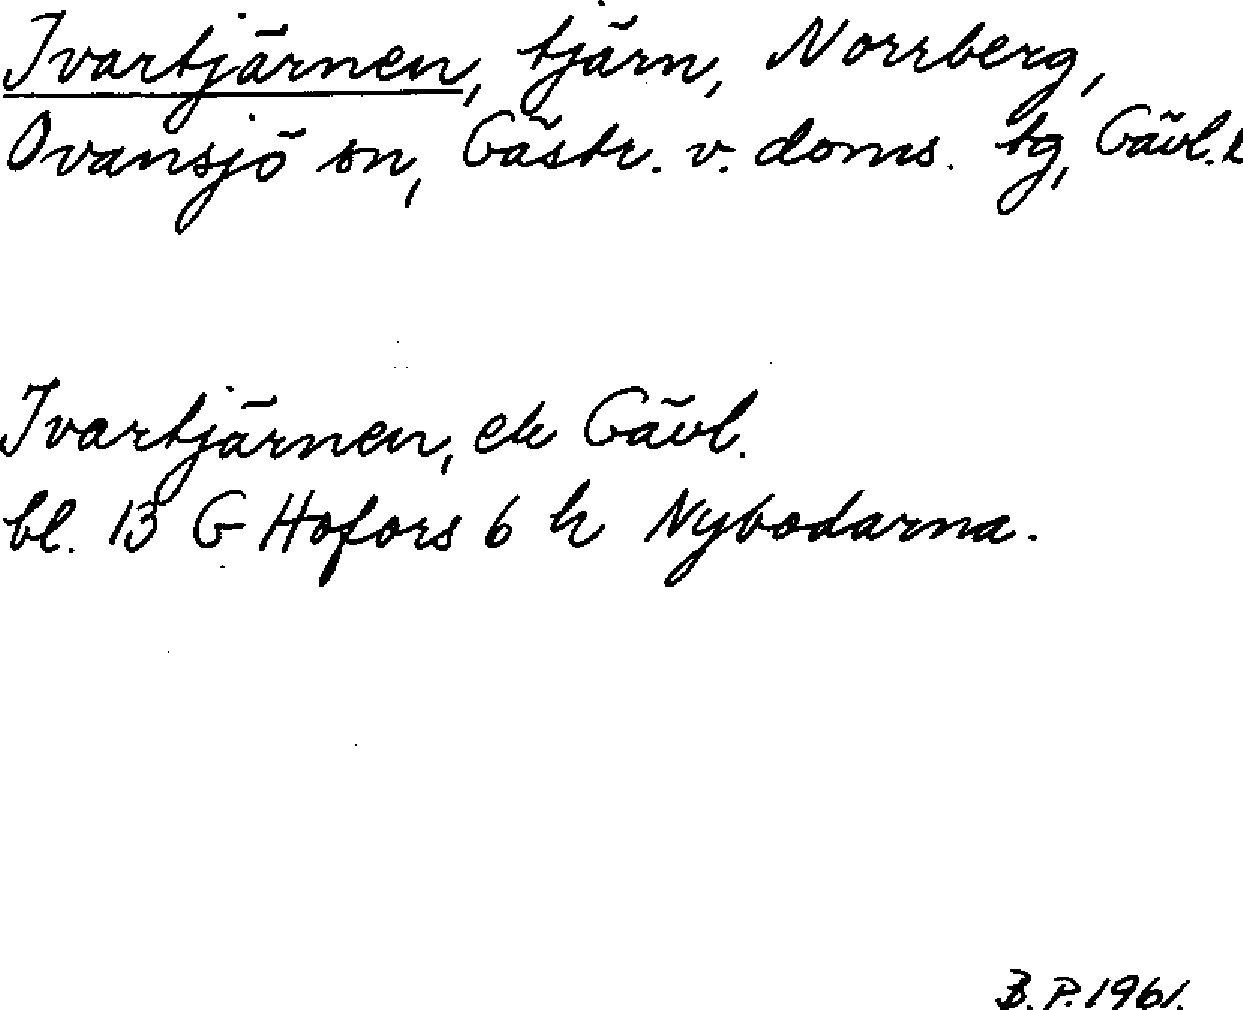 Ivartjärnen, tjärn, Norrberg,
Ovansjö sn, Gästr. v. doms. tg, Gävl. l
Ivartjärnen, ek Gävl.
bl. 13 G Hofors 6 h Nybodarna.
B.P. 1961.